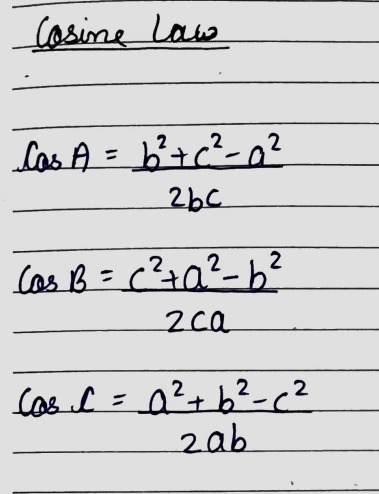 Cosine Law
Cos A = b²+c²-a²
2bc
Cos B = c²+a²-b²
2ca
Cos C = a²+b²-c²
2ab